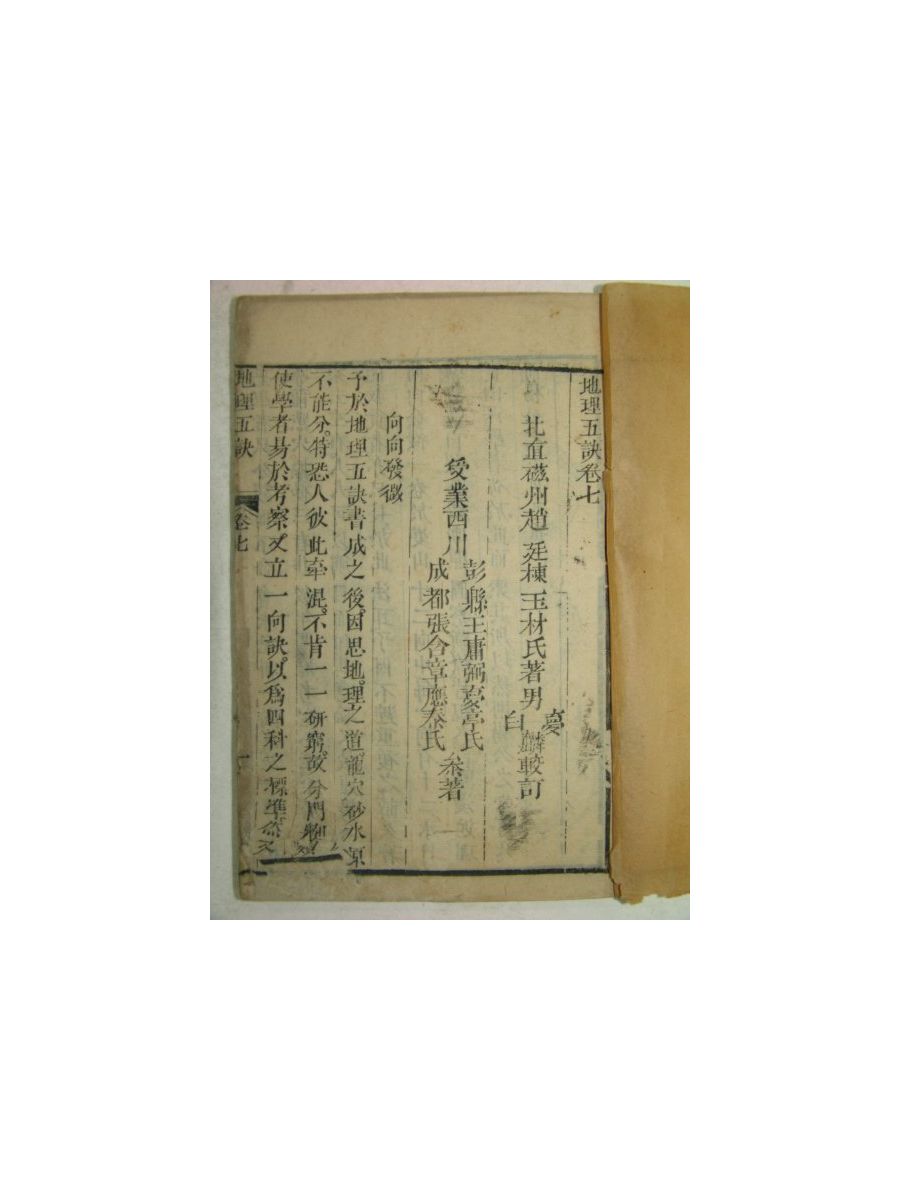 地理五訣卷七
北直磁州趙 廷棟 玉材氏著男
夢
白
麟較訂
受業西川
彭縣王庸弼豪亭氏
成都張含章應泰氏
叅著
向向發微
予於地理五訣書成之後。因思地理之道。龍穴砂水原
不能分。特恐人彼此牽混。不肯一一研窮。故分門
使學者易於考察。又立一向訣。以爲四科之標準。
地理五訣
卷七